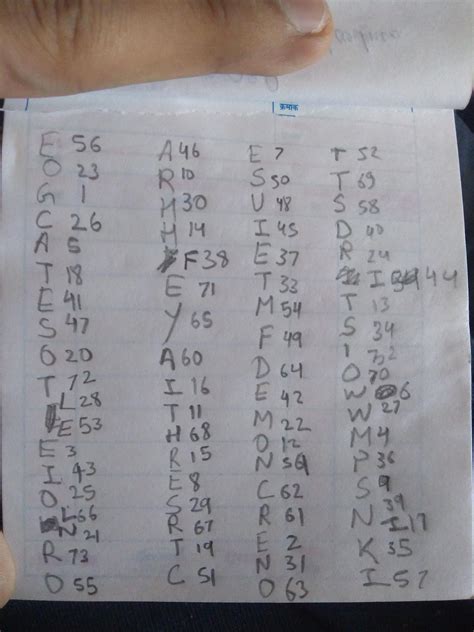 क्रमांक
E 56
O 23
G 1
C 26
A 5
T 18
E 41
S 47
O 20
T 72
L 28
E 53
E 3
I 43
O 25
L 66
N 21
R 73
O 55
A 46
R 10
H 30
H 14
F 38
E 71
Y 65
A 60
I 16
T 11
H 68
R 15
E 8
S 29
R 67
T 19
C 51
E 7
S 50
U 48
I 45
E 37
T 33
M 54
F 49
D 64
E 42
M 22
O 12
N 59
C 62
R 61
E 2
N 31
O 63
T 52
T 69
S 58
D 40
R 24
I 44
T 13
S 34
I 32
O 70
W 6
W 27
M 4
P 36
S 9
N 39
I 17
K 35
I 57